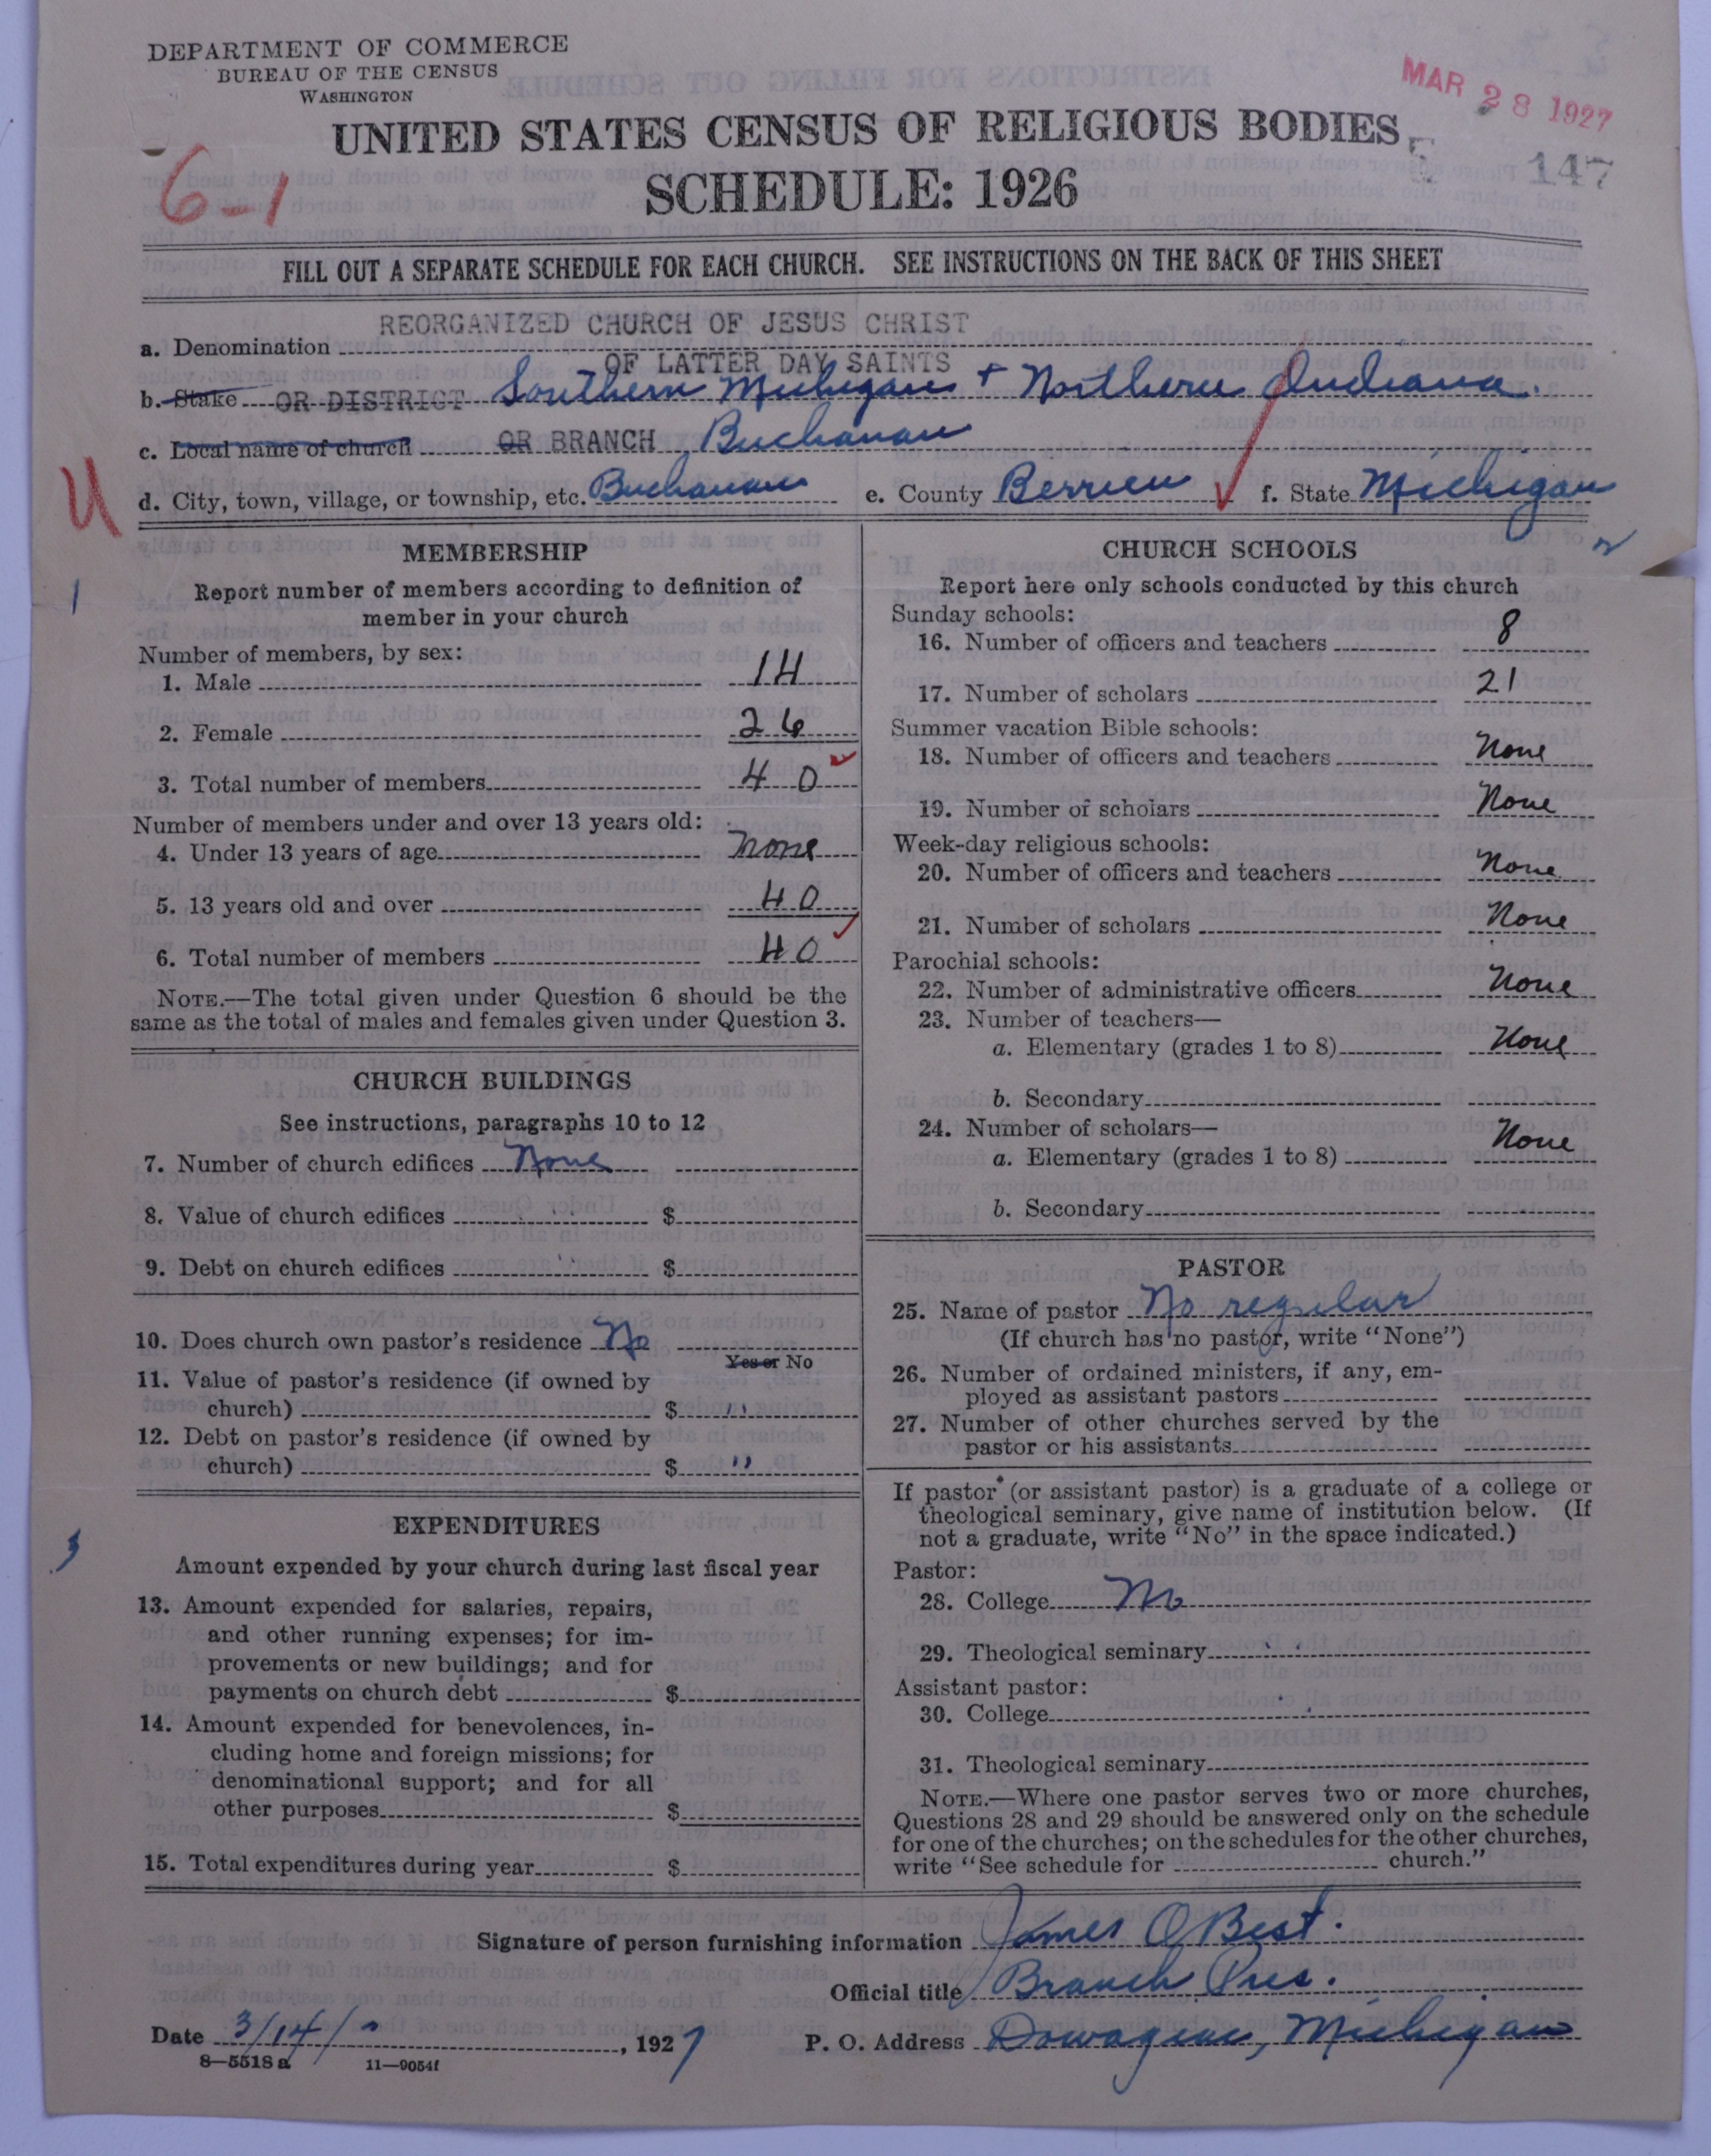 DEPARTMENT OF COMMERCE
BUREAU OF THE CENSUS
WASHINGTON
MAR 28 1927
UNITED STATES CENSUS OF RELIGIOUS BODIES
147
6-1
SCHEDULE: 1926
FILL OUT A SEPARATE SCHEDULE FOR EACH CHURCH. SEE INSTRUCTIONS ON THE BACK OF THIS SHEET
REORGANIZED CHURCH OF JESUS CHRIST
a. Denomination
OF LATTER DAY SAINTS
b. Stake OR DISTRICT Southern Michigan + Northern Indiana.
c. Local name of church OR BRANCH Buchanan
U
d. City, town, village, or township, etc. Buchanan e. County Berrien f. State Michigan
MEMBERSHIP
1
Report number of members according to definition of
member in your church
Number of members, by sex:
1. Male 14
2. Female 26
3. Total number of members 40
Number of members under and over 13 years old:
4. Under 13 years of age none
5. 13 years old and over 40
6. Total number of members 40
NOTE.—The total given under Question 6 should be the
same as the total of males and females given under Question 3.
CHURCH BUILDINGS
See instructions, paragraphs 10 to 12
7. Number of church edifices None
8. Value of church edifices $
9. Debt on church edifices $
10. Does church own pastor's residence No
Yes or No
11. Value of pastor's residence (if owned by
church) $ "
12. Debt on pastor's residence (if owned by
church) $ "
EXPENDITURES
3
Amount expended by your church during last fiscal year
13. Amount expended for salaries, repairs,
and other running expenses; for im-
provements or new buildings; and for
payments on church debt $
14. Amount expended for benevolences, in-
cluding home and foreign missions; for
denominational support; and for all
other purposes $
15. Total expenditures during year $
CHURCH SCHOOLS
Report here only schools conducted by this church
Sunday schools:
16. Number of officers and teachers 8
17. Number of scholars 21
Summer vacation Bible schools:
18. Number of officers and teachers None
19. Number of scholars None
Week-day religious schools:
20. Number of officers and teachers None
21. Number of scholars None
Parochial schools:
22. Number of administrative officers None
23. Number of teachers—
a. Elementary (grades 1 to 8) None
b. Secondary
24. Number of scholars—
a. Elementary (grades 1 to 8) None
b. Secondary
PASTOR
25. Name of pastor No regular
(If church has no pastor, write "None")
26. Number of ordained ministers, if any, em-
ployed as assistant pastors
27. Number of other churches served by the
pastor or his assistants
If pastor (or assistant pastor) is a graduate of a college or
theological seminary, give name of institution below. (If
not a graduate, write "No" in the space indicated.)
Pastor:
28. College No
29. Theological seminary
Assistant pastor:
30. College
31. Theological seminary
NOTE.—Where one pastor serves two or more churches,
Questions 28 and 29 should be answered only on the schedule
for one of the churches; on the schedules for the other churches,
write "See schedule for church."
Signature of person furnishing information James O Best.
Official title Branch Pres.
Date 3/14/, 1927 P. O. Address Dowagiac, Michigan
8—5518a 11—9054f